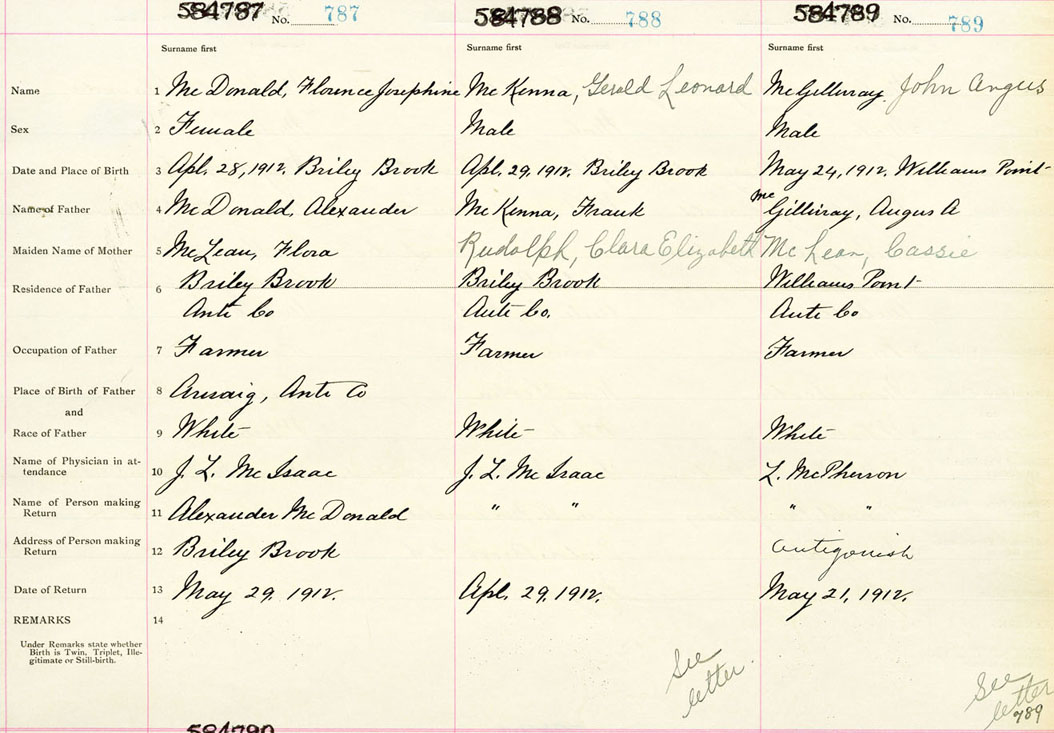 584787 No. 787 584788 No. 788 584789 No. 789
Surname first Surname first Surname first
Name 1 Mc Donald, Florence Josephine Mc Kenna, Gerald Leonard McGillivray John Angus
Sex 2 Female Male Male
Date and Place of Birth 3 Apl. 28, 1912. Briley Brook Apl. 29, 1912. Briley Brook May 24, 1912. Williams Point
Name of Father 4 Mc Donald, Alexander Mc Kenna, Frank Mc Gillivray, Angus A
Maiden Name of Mother 5 McLean, Flora Rudolph, Clara Elizabeth Mc Lean, Cassie
Residence of Father 6 Briley Brook Briley Brook Williams Point
Anti Co Anti Co. Anti Co
Occupation of Father 7 Farmer Farmer Farmer
Place of Birth of Father 8 Arisaig, Anti Co
and
Race of Father 9 White White White
Name of Physician in at-
tendance 10 J. L. Mc Isaac J. L. Mc Isaac L. McPherson
Name of Person making
Return 11 Alexander Mc Donald " " " "
Address of Person making
Return 12 Briley Brook Antigonish
Date of Return 13 May 29. 1912. Apl. 29, 1912. May 21, 1912.
REMARKS 14
Under Remarks state whether
Birth is Twin, Triplet, Ille-
gitimate or Still-birth.
See
letter.
See
letter
789
584790